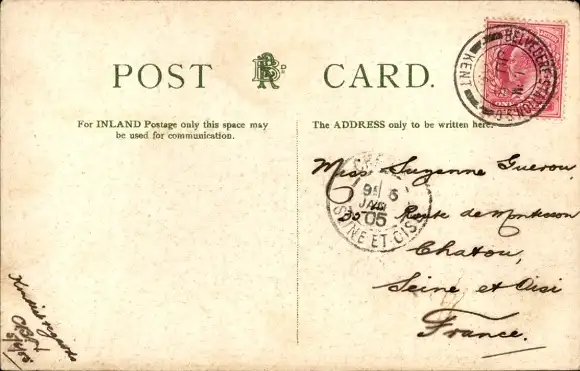 POST CARD.
For INLAND Postage only this space may
be used for communication.
The ADDRESS only to be written here.
BELVEDERE
KENT
Miss Suzanne Guerou,
30 Route de Montesson
Chatou,
Seine et Oisi
France.
95 6
05
SEINE-ET-OISE
Kindest regards